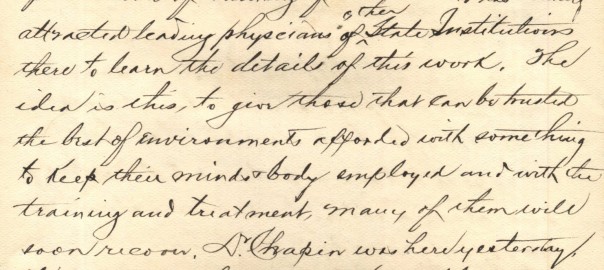 attracted leading physicians of other State Institutions
there to learn the details of this work. The
idea is this, to give those that can be trusted
the best of environments afforded with something
to keep their minds & body employed and with the
training and treatment, many of them will
soon recover. Dr. Chapin was here yesterday,